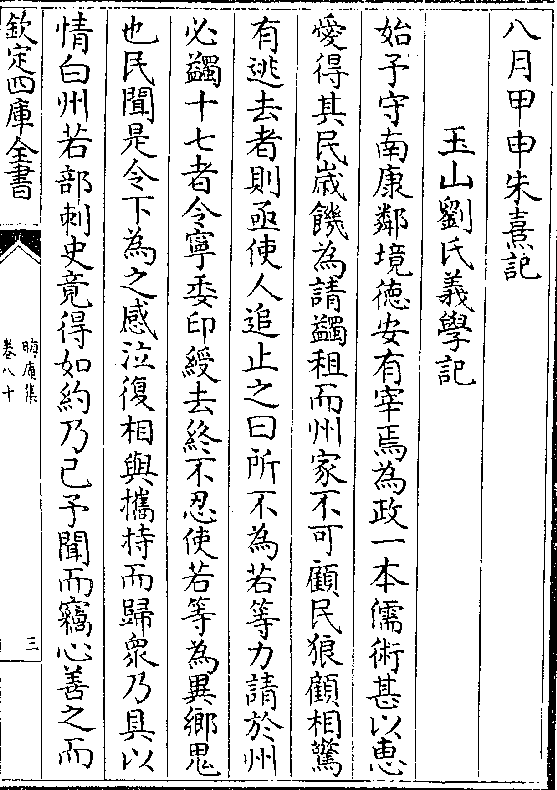 八月甲申朱熹記
玉山劉氏義學記
始予守南康鄰境德安有宰焉為政一本儒術甚以惠
愛得其民歳饑為請蠲租而州家不可顧民狼顧相驚
有逃去者則亟使人追止之曰所不為若等力請於州
必蠲十七者令寧委印綬去終不忍使若等為異鄉鬼
也民聞是令下為之感泣復相與攜持而歸衆乃具以
情白州若部刺史竟得如約乃已予聞而竊心善之而
欽定四庫全書
晦庵集
卷八十
三